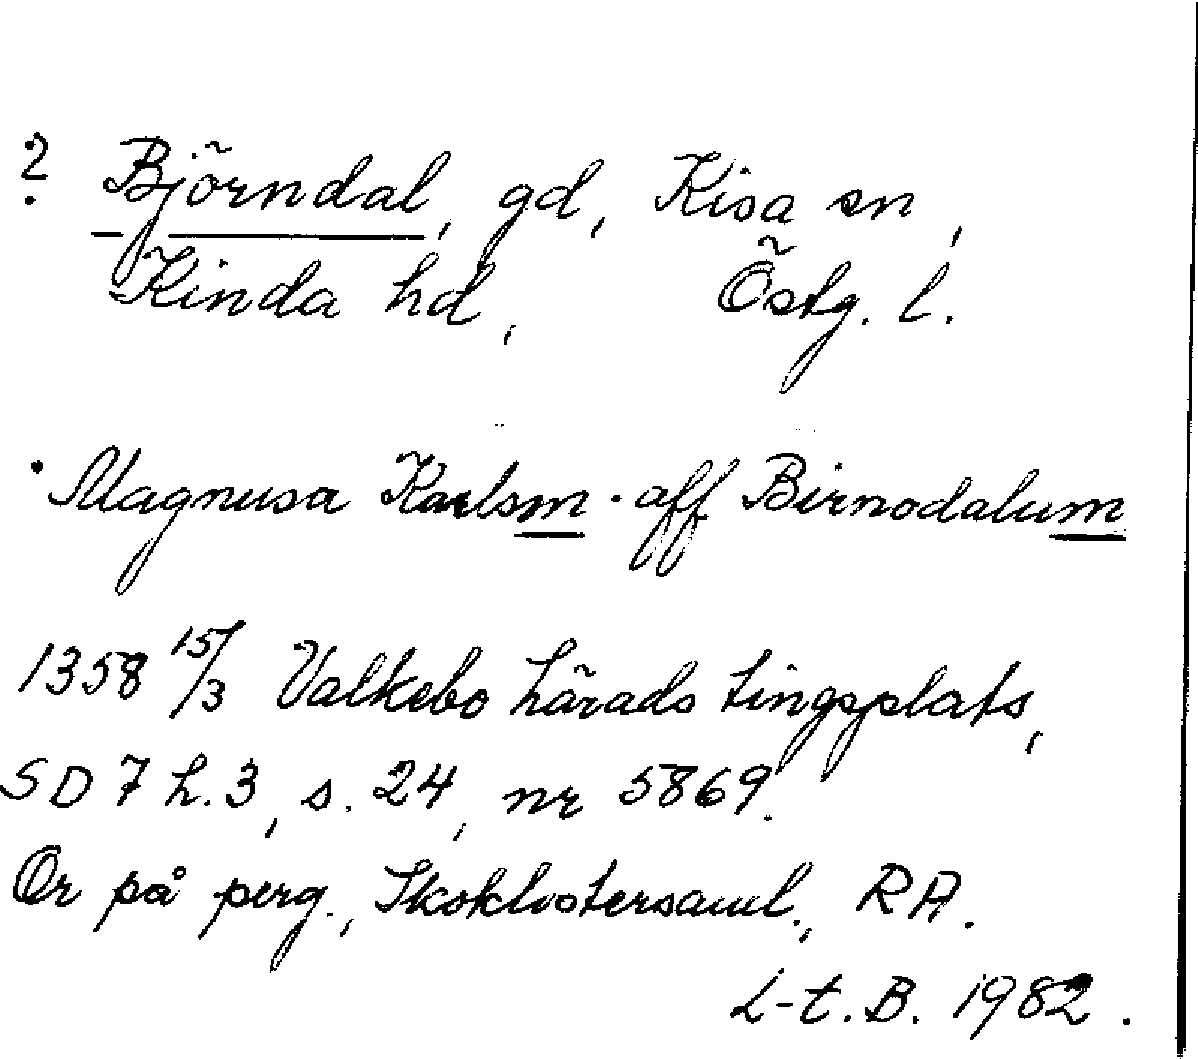 ? Björndal, gd, Kisa sn,
Kinda hd, Östg. l.
· Magnusa Karlsm · aff Birnodalum
1358 15/3 Valkebo härads tingsplats,
SD 7 h. 3, s. 24, nr 5869.
Or på perg., Skoklostersaml., RA.
L-t. B. 1982.